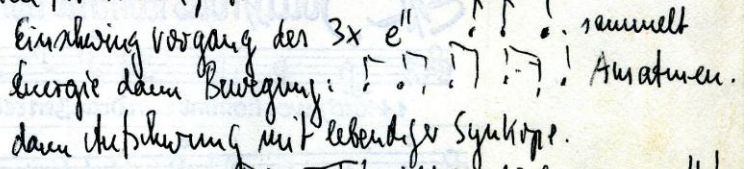 Einschwingvorgang des 3x e" sammelt
Energie dann Bewegung: Ausatmen.
dann Aufschwung mit lebendiger Synkope.